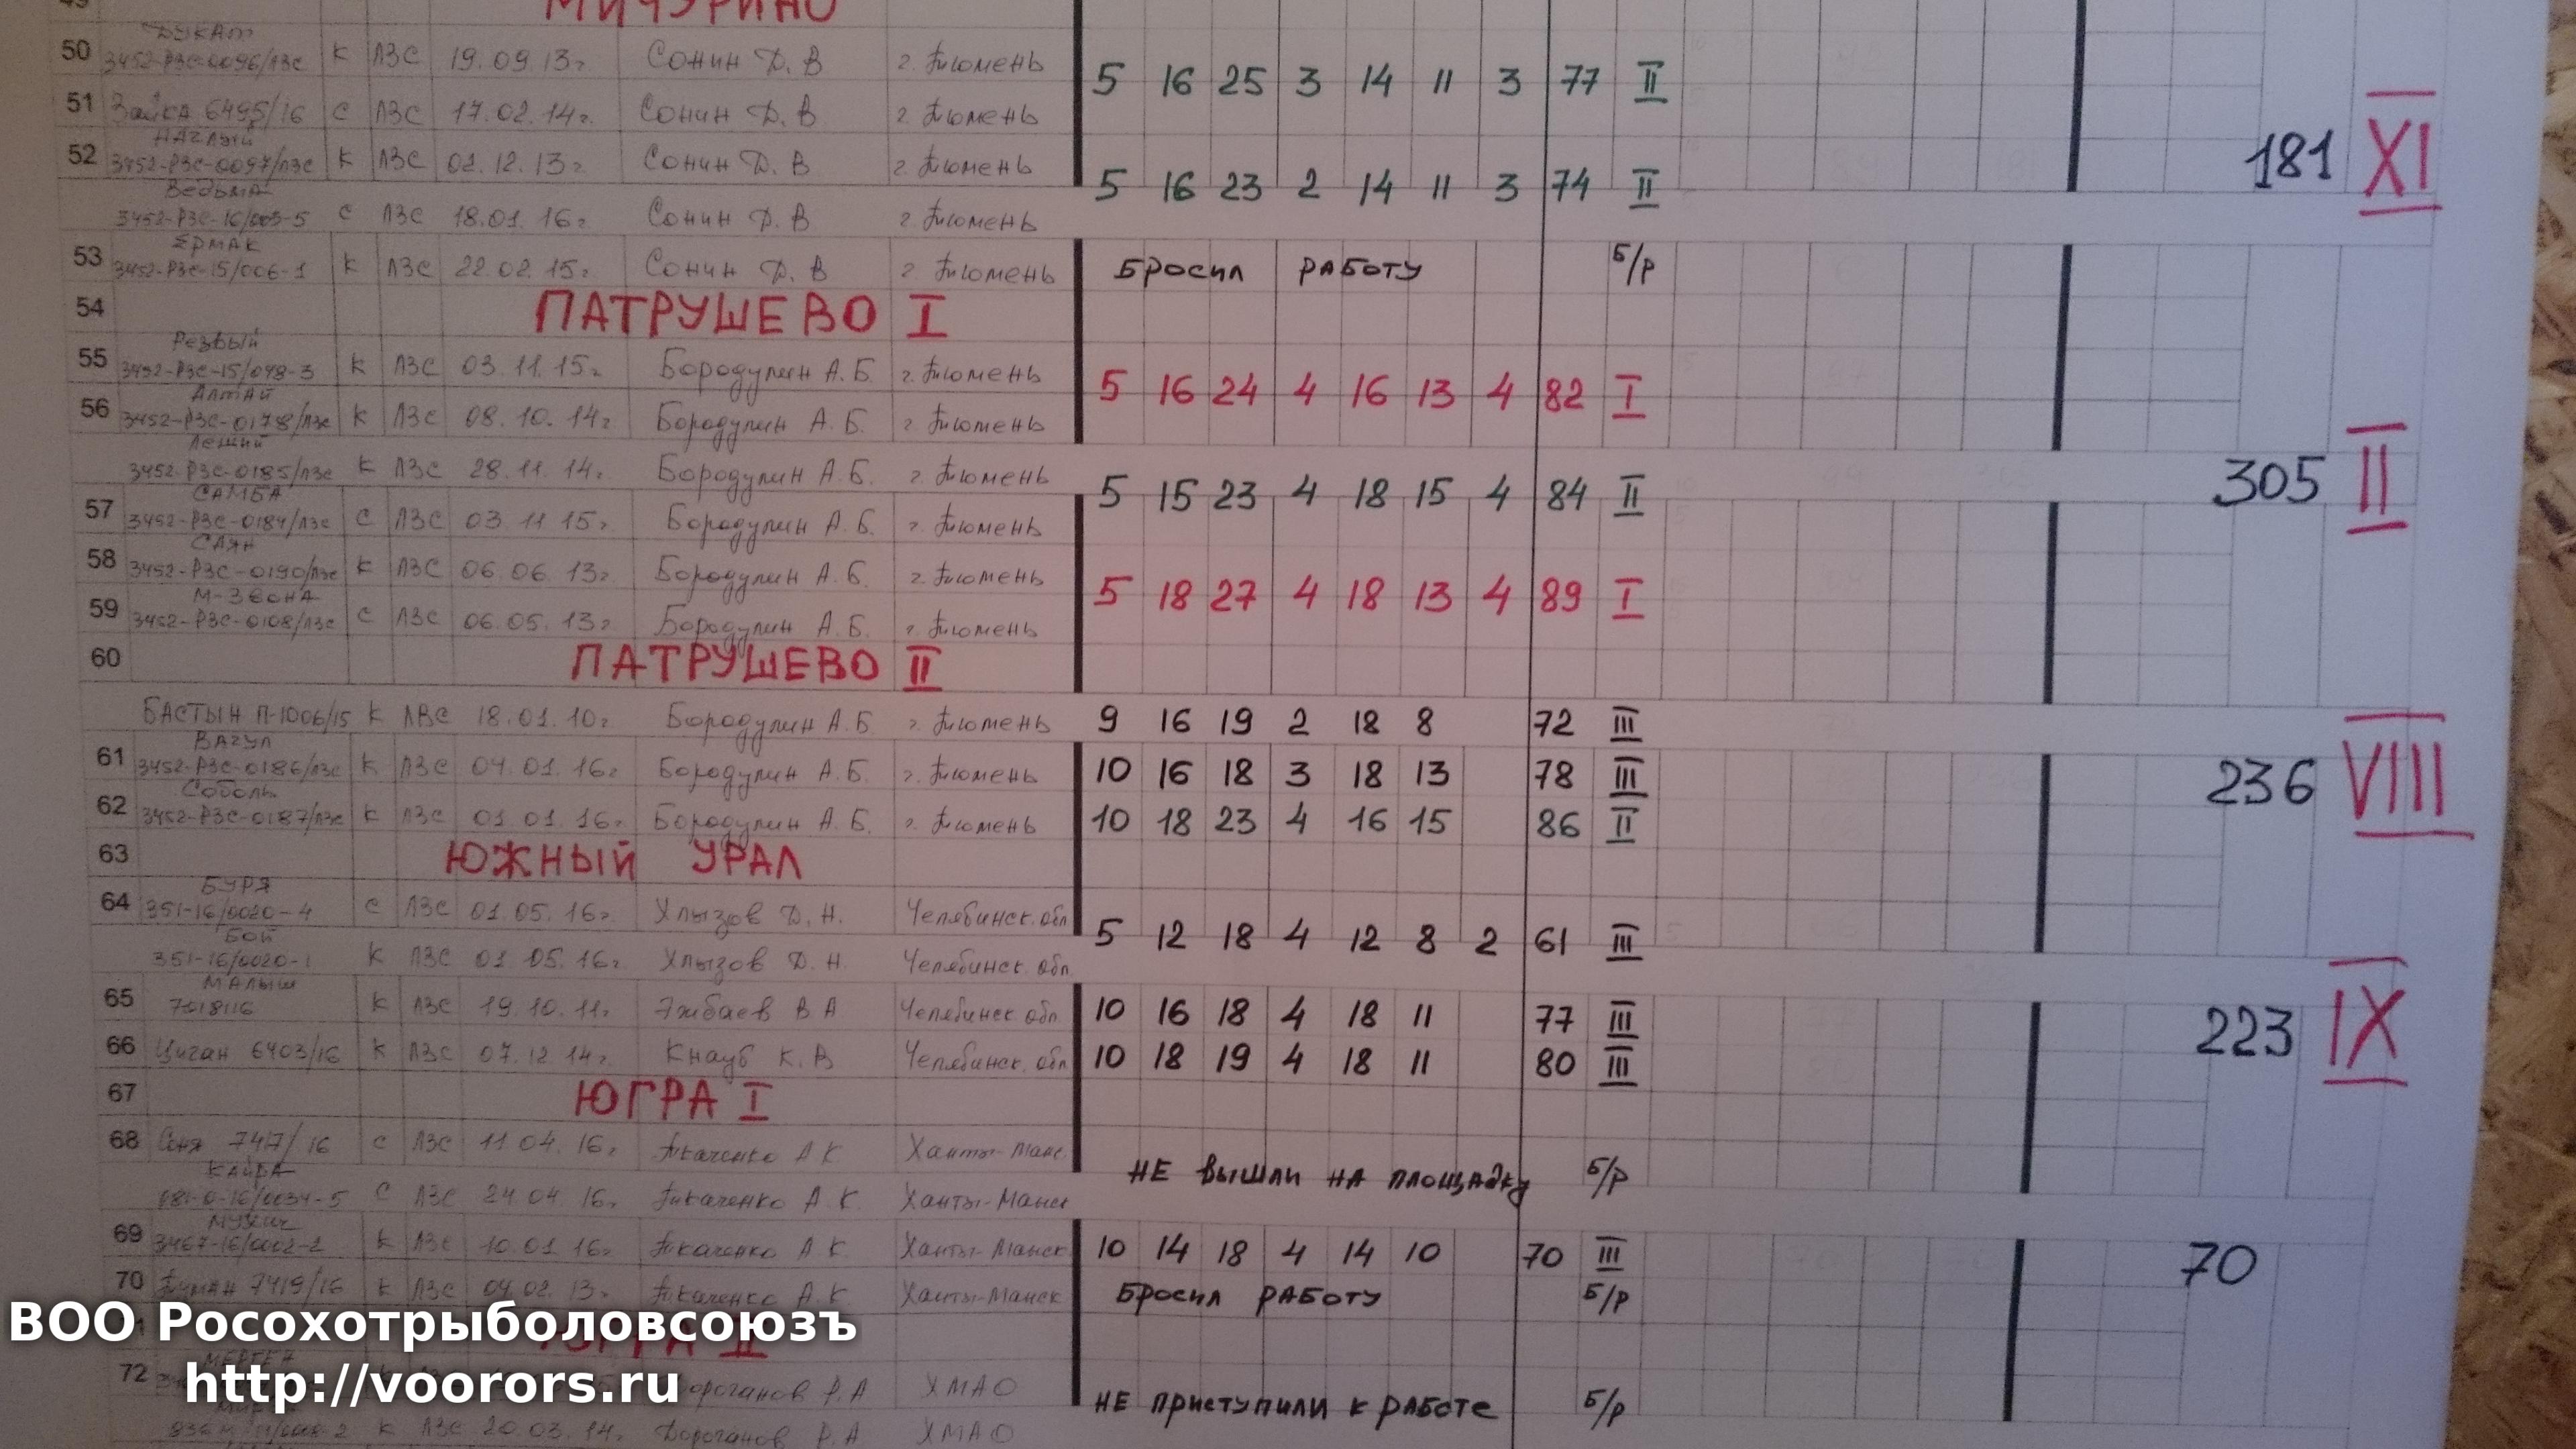 МИЧУРИНО
ДУКАТ
50 3452-РЗС-0096/ЛЗС К ЛЗС 19.09.13г Сонин Д. В г. Тюмень
5 16 25 3 14 11 3 77 II
51 Зайка 6495/16 С ЛЗС 17.02.14г. Сонин Д. В г. Тюмень
181 XI
НАГЛЫЙ
52 3452-РЗС-0097/ЛЗС К ЛЗС 01.12.13г. Сонин Д. В г. Тюмень
5 16 23 2 14 11 3 74 II
Ведьма
3452-РЗС-16/003-5 С ЛЗС 18.01.16г Сонин Д. В г. Тюмень
ЕРМАК
53 3452-РЗС-15/006-1 К ЛЗС 22.02.15г. Сонин Д. В г. Тюмень Бросил работу Б/Р
54 ПАТРУШЕВО I
Резвый
55 3452-РЗС-15/048-3 К ЛЗС 03.11.15г. Бородулин А.Б. г. Тюмень
5 16 24 4 16 13 4 82 I
АЛТАЙ
56 3452-РЗС-0178/ЛЗС К ЛЗС 08.10.14г Бородулин А.Б. г. Тюмень
Леший
3452-РЗС-0185/ЛЗС К ЛЗС 28.11.14г. Бородулин А.Б. г. Тюмень
5 15 23 4 18 15 4 84 II
305 II
САМБА
57 3452-РЗС-0184/ЛЗС С ЛЗС 03.11.15г Бородулин А.Б. г. Тюмень
САЯН
58 3452-РЗС-0190/ЛЗС К ЛЗС 06.06.13г Бородулин А.Б. г. Тюмень
5 18 27 4 18 13 4 89 I
М-ЗВОНА
59 3452-РЗС-0108/ЛЗС С ЛЗС 06.05.13г Бородулин А.Б. г. Тюмень
60 ПАТРУШЕВО II
БАСТЫН П-1006/15 К ЛВС 18.01.10г Бородулин А.Б г. Тюмень 9 16 19 2 18 8 72 III
ВАГУЛ
61 3452-РЗС-0186/ЛЗС К ЛЗС 04.01.16г Бородулин А.Б. г. Тюмень 10 16 18 3 18 13 78 III
236 VIII
Соболь
62 3452-РЗС-0187/ЛЗС К ЛЗС 01.01.16г Бородулин А.Б. г. Тюмень 10 18 23 4 16 15 86 II
63 ЮЖНЫЙ УРАЛ
БУРЯ
64 351-16/0020-4 С ЛЗС 01.05.16г. Хлызов Д.Н. Челябинск.обл
5 12 18 4 12 8 2 61 III
БОЙ
351-16/0020-1 К ЛЗС 01.05.16г Хлызов Д.Н. Челябинск.обл.
МАЛЫШ
65 К ЛЗС 19.10.11г В А Челябинск обл. 10 16 18 4 18 11 77 III
223 IX
66 Цыган 6403/16 К ЛЗС 07.12.14г. Кнауб К.В Челябинск.обл 10 18 19 4 18 11 80 III
67 ЮГРА I
68 Соня 7417/16 С ЛЗС 11.04.16г Ткаченко А К Ханты-Манс.
НЕ вышли на площадку Б/Р
КАЙРА
С ЛЗС 24.04.16г. Ткаченко А.К. Ханты-Манск
69 3467-16/0002-2 К ЛЗС 10.01.16г Ткаченко А К. Ханты-Манск 10 14 18 4 14 10 70 III
70
70 Туман 7419/16 К ЛЗС 04.02.13г. Ткаченко А.К Ханты-Манск Бросил работу Б/Р
ЮГРА II
МЕРГЕН
72 Дороганов Р.А ХМАО
НЕ приступили к работе Б/Р
К ЛЗС 20.03.14г. Дороганов Р.А ХМАО
ВОО Росохотрыболовсоюзъ
http://voorors.ru